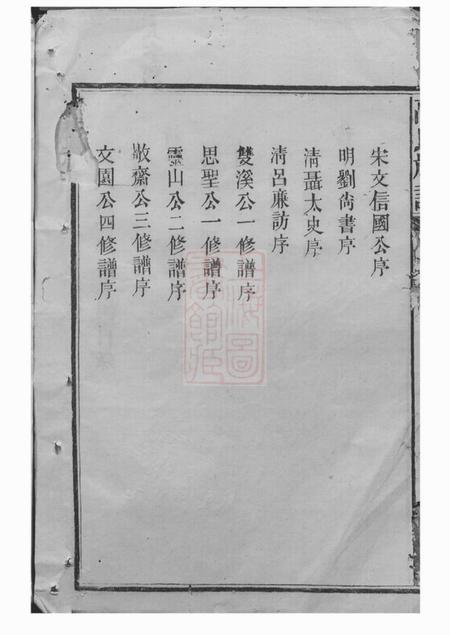 宋文信國公序
明劉尚書序
清聶太史序
清呂廉訪序
雙溪公一修譜序
思聖公一修譜序
靈山公二修譜序
敬齋公三修譜序
文園公四修譜序
上海圖書館藏